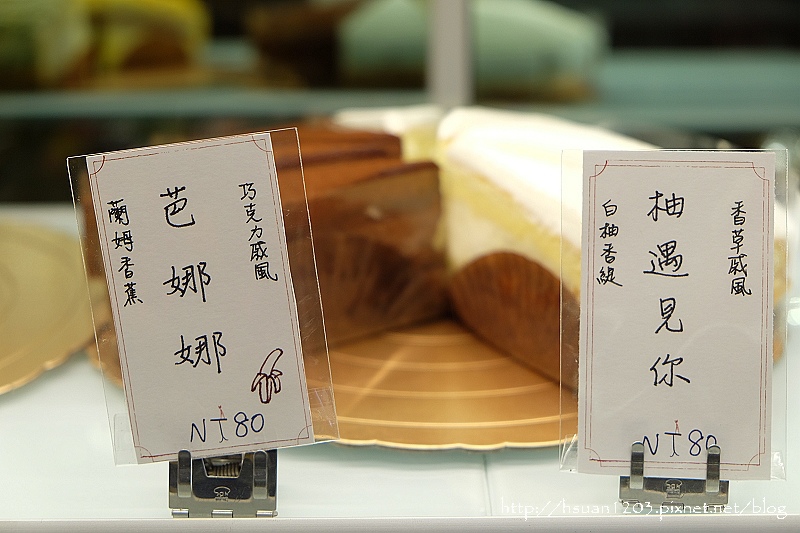 巧克力戚風
芭娜娜
蘭姆香蕉
NT80
香草戚風
柚遇見你
白柚香緹
NT80
http://hsuan1203.pixnet.net/blog